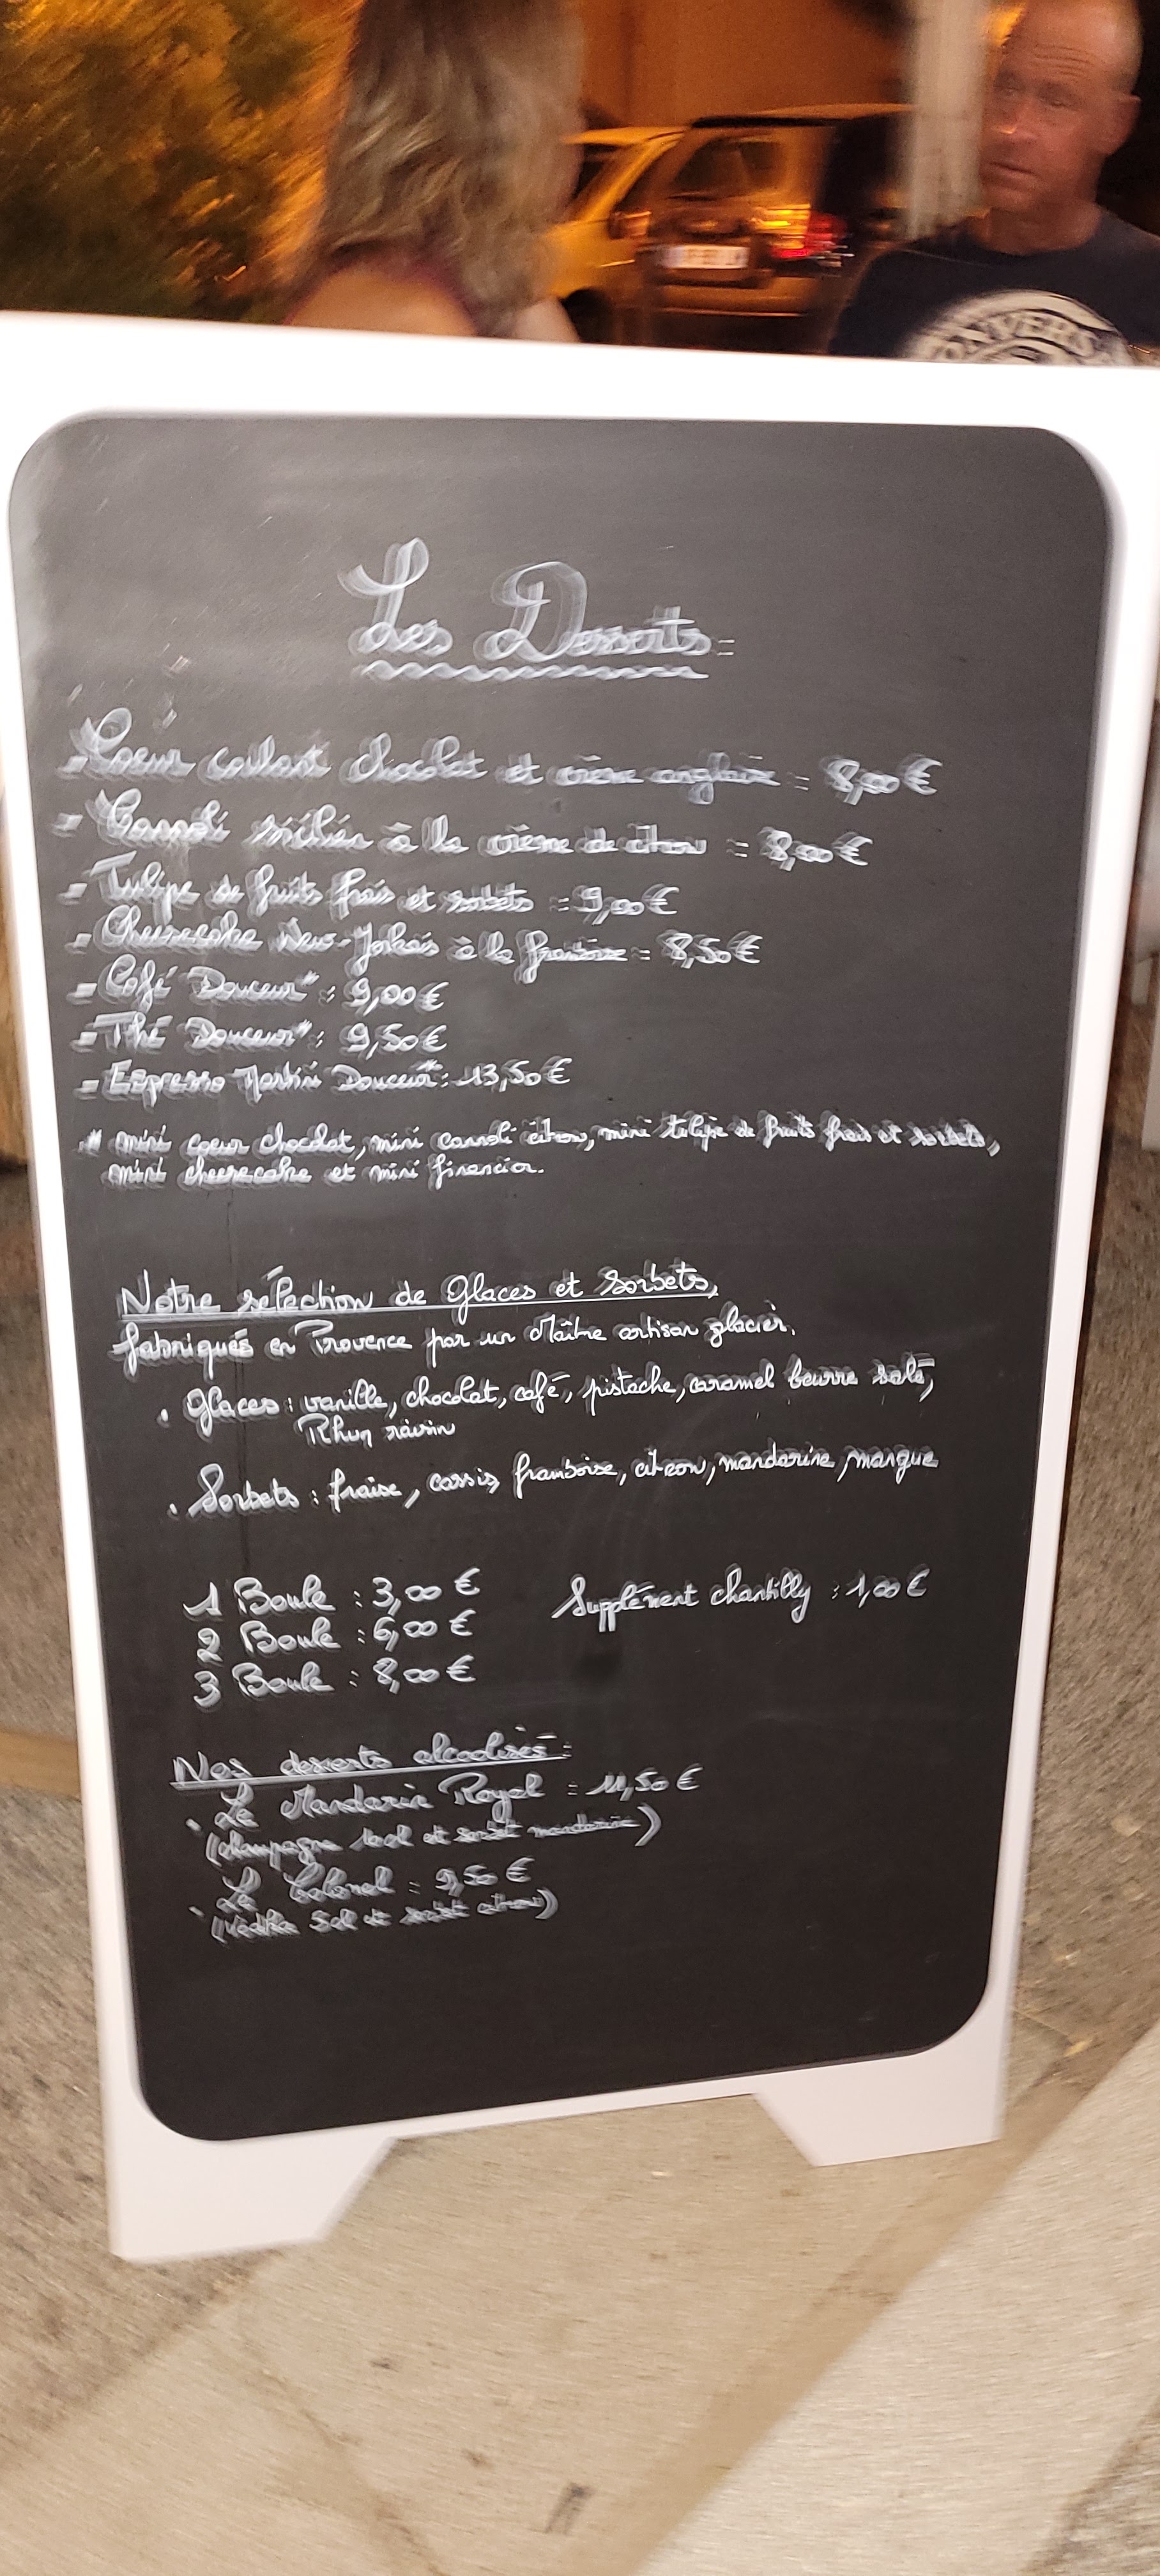 CONVERS
Les Desserts :
- Coeur coulant chocolat et crème anglaise : 8,00 €
- Cannoli sicilien à la crème de citron : 8,00 €
- Tulipe de fruits frais et sorbets : 9,00 €
- Cheesecake New-Yorkais à la framboise : 8,50 €
- Café Douceur* : 9,00 €
- Thé Douceur* : 9,50 €
- Espresso Martini Douceur* : 13,50 €
* mini coeur chocolat, mini cannoli citron, mini tulipe de fruits frais et sorbets,
mini cheesecake et mini financier.
Notre sélection de Glaces et Sorbets,
fabriqués en Provence par un Maître artisan glacier.
. Glaces : vanille, chocolat, café, pistache, caramel beurre salé,
Rhum raisin
. Sorbets : fraise, cassis, framboise, citron, mandarine, mangue
1 Boule : 3,00 € Supplément chantilly : 1,00 €
2 Boule : 6,00 €
3 Boule : 8,00 €
Nos desserts alcoolisés :
. Le Mandarin Royal : 11,50 €
(champagne et sorbet mandarine)
. Le Colonel : 9,50 €
(Vodka et sorbet citron)